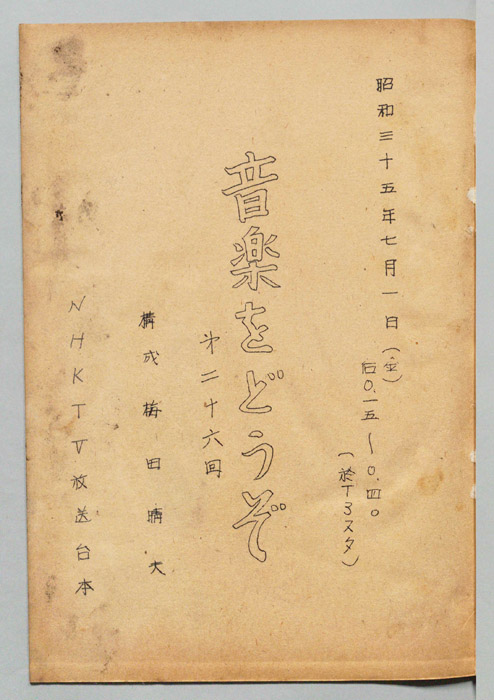 昭和三十五年七月一日(金)
后0.一五〜0.四0
(於T3スタ)
音楽をどうぞ
第二十六回
構成 梅田晴夫
NHKTV放送台本